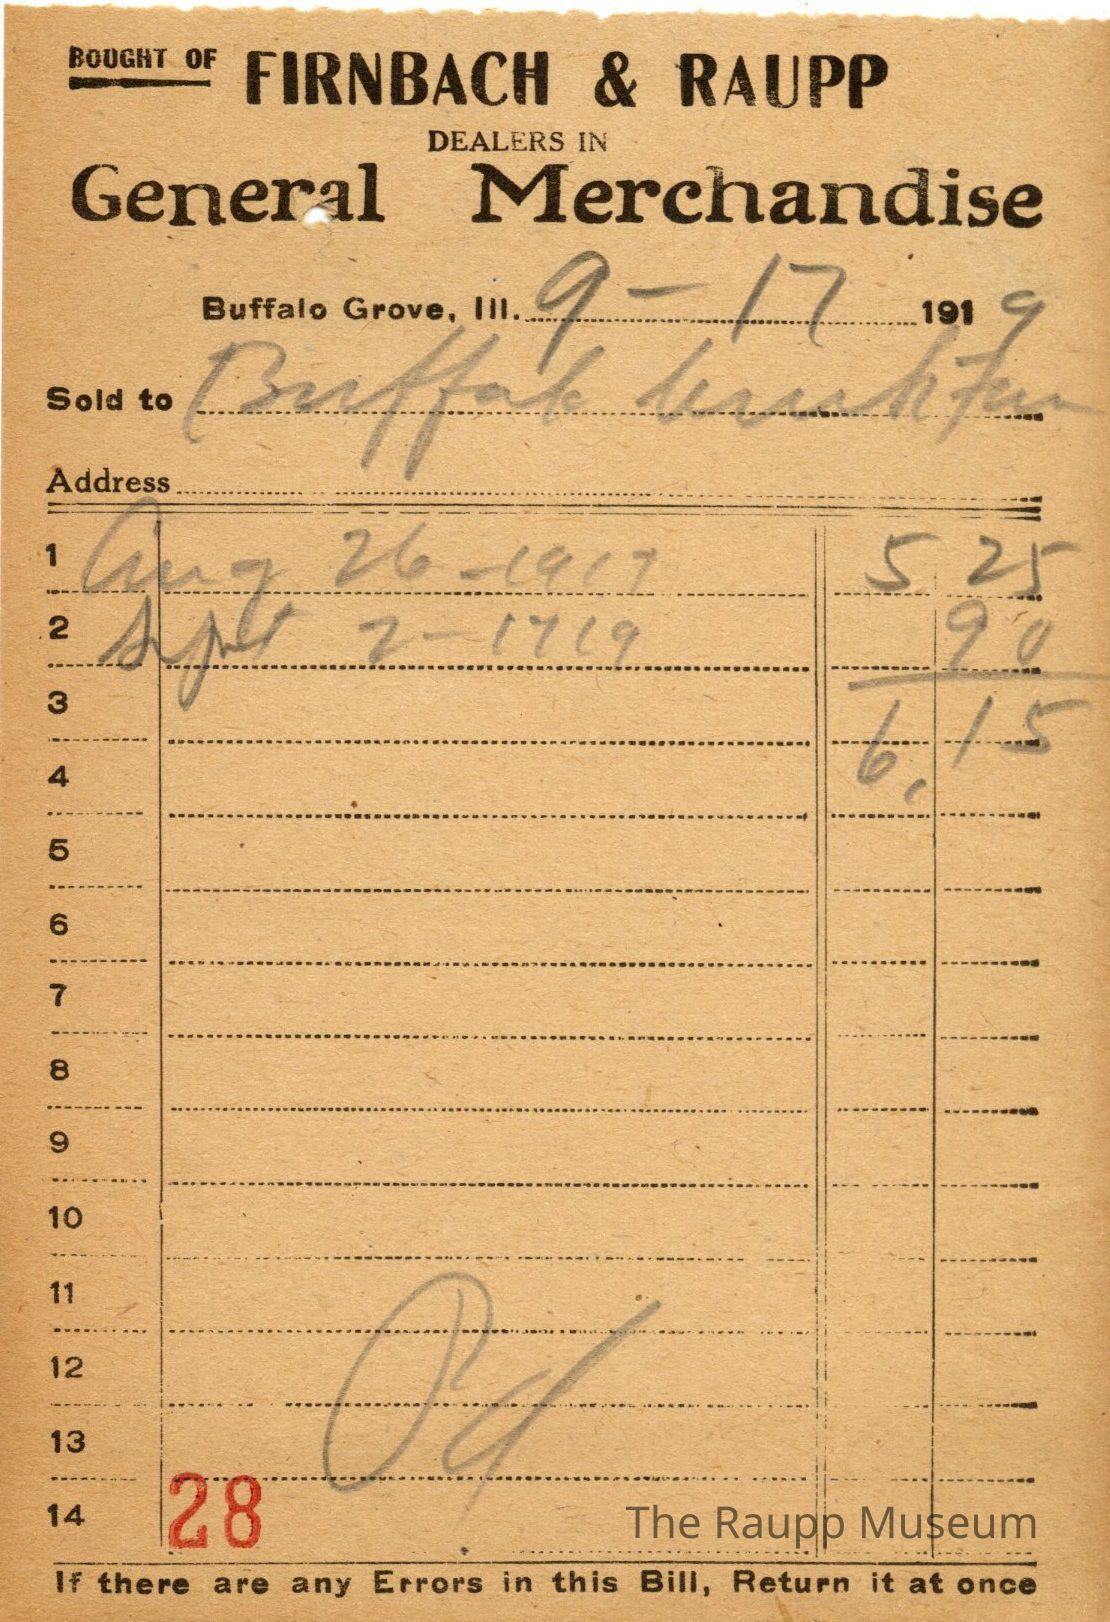 BOUGHT OF FIRNBACH & RAUPP
DEALERS IN
General Merchandise
Buffalo Grove, Ill. 9-17 1919
Sold to Buffalo
Address
1 Aug 26-1917 5 25
2 Sept 2-1719 90
3 6,15
4
5
6
7
8
9
10
11
12
13
14 28
Pd
The Raupp Museum
If there are any Errors in this Bill, Return it at once